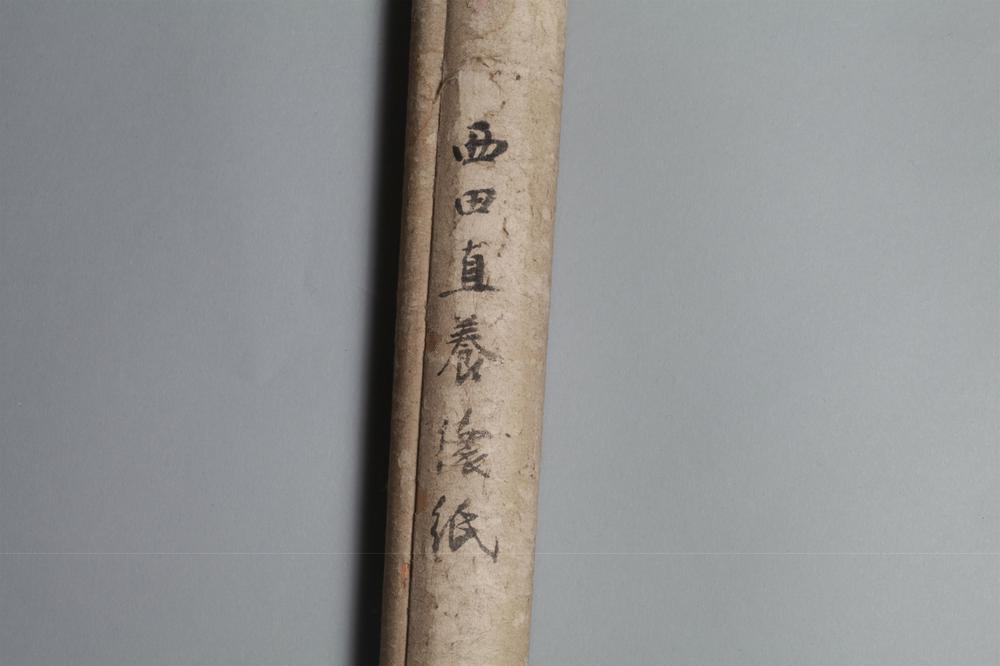 西田直養懐紙